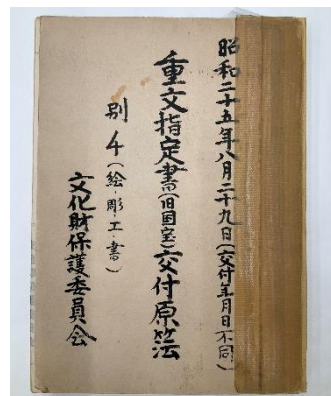 昭和二十五年八月二十九日(交付年月日不同)
重文指定書(旧国宝)交付原簿
別4(絵・彫・工・書)
文化財保護委員会